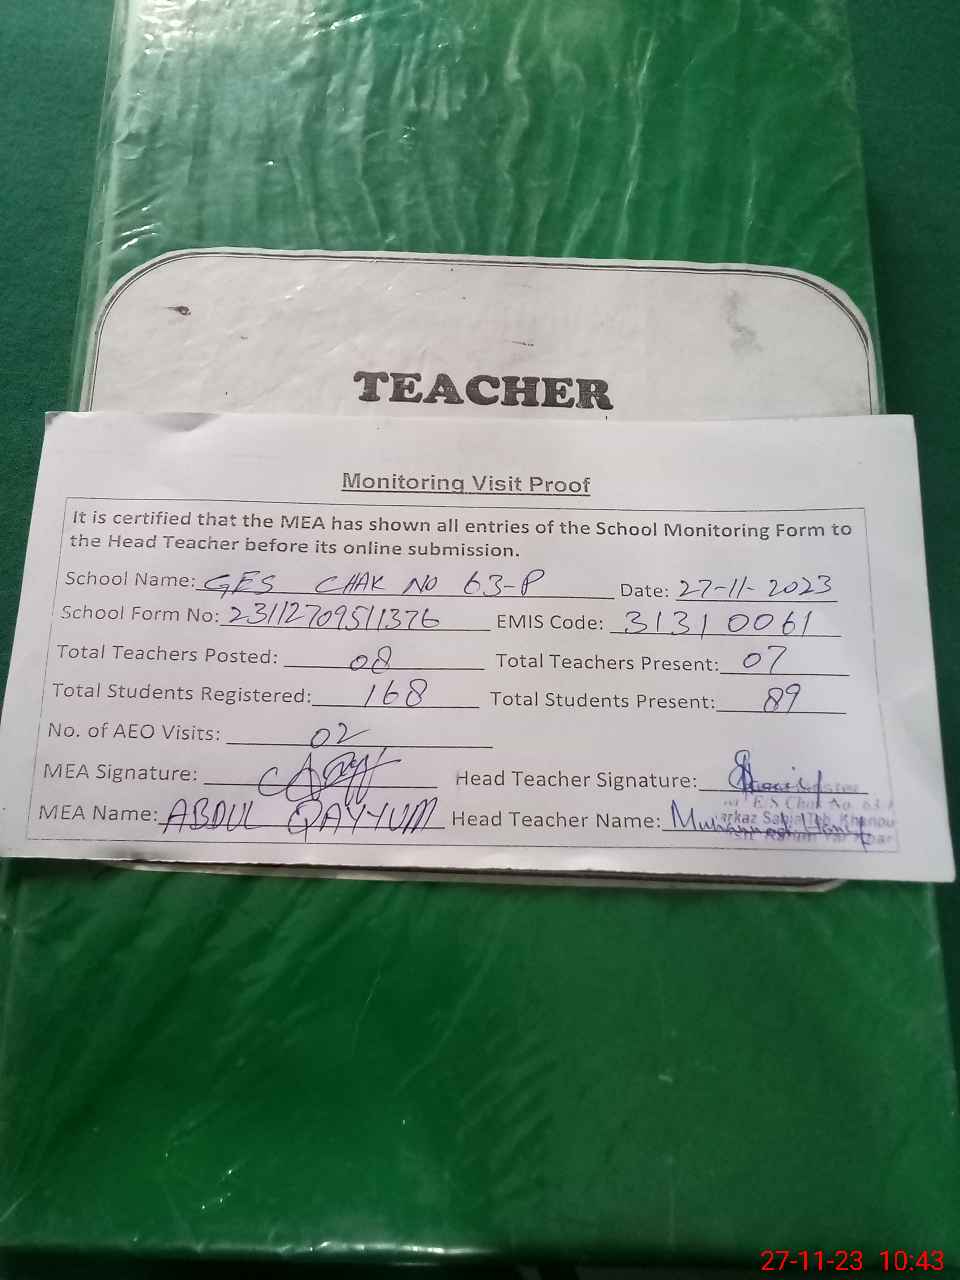 TEACHER
Monitoring Visit Proof
It is certified that the MEA has shown all entries of the School Monitoring Form to
the Head Teacher before its online submission.
School Name: GES CHAK NO 63-P Date: 27-11-2023
School Form No: 23112709511376 EMIS Code: 31310061
Total Teachers Posted: 08 Total Teachers Present: 07
Total Students Registered: 168 Total Students Present: 89
No. of AEO Visits: 02
MEA Signature: Head Teacher Signature:
E/S Chak No. 63
MEA Name: ABDUL QAYYUM Head Teacher Name: Muhammad Hanif
Markaz Sabia Teh. Khanpu
27-11-23 10:43